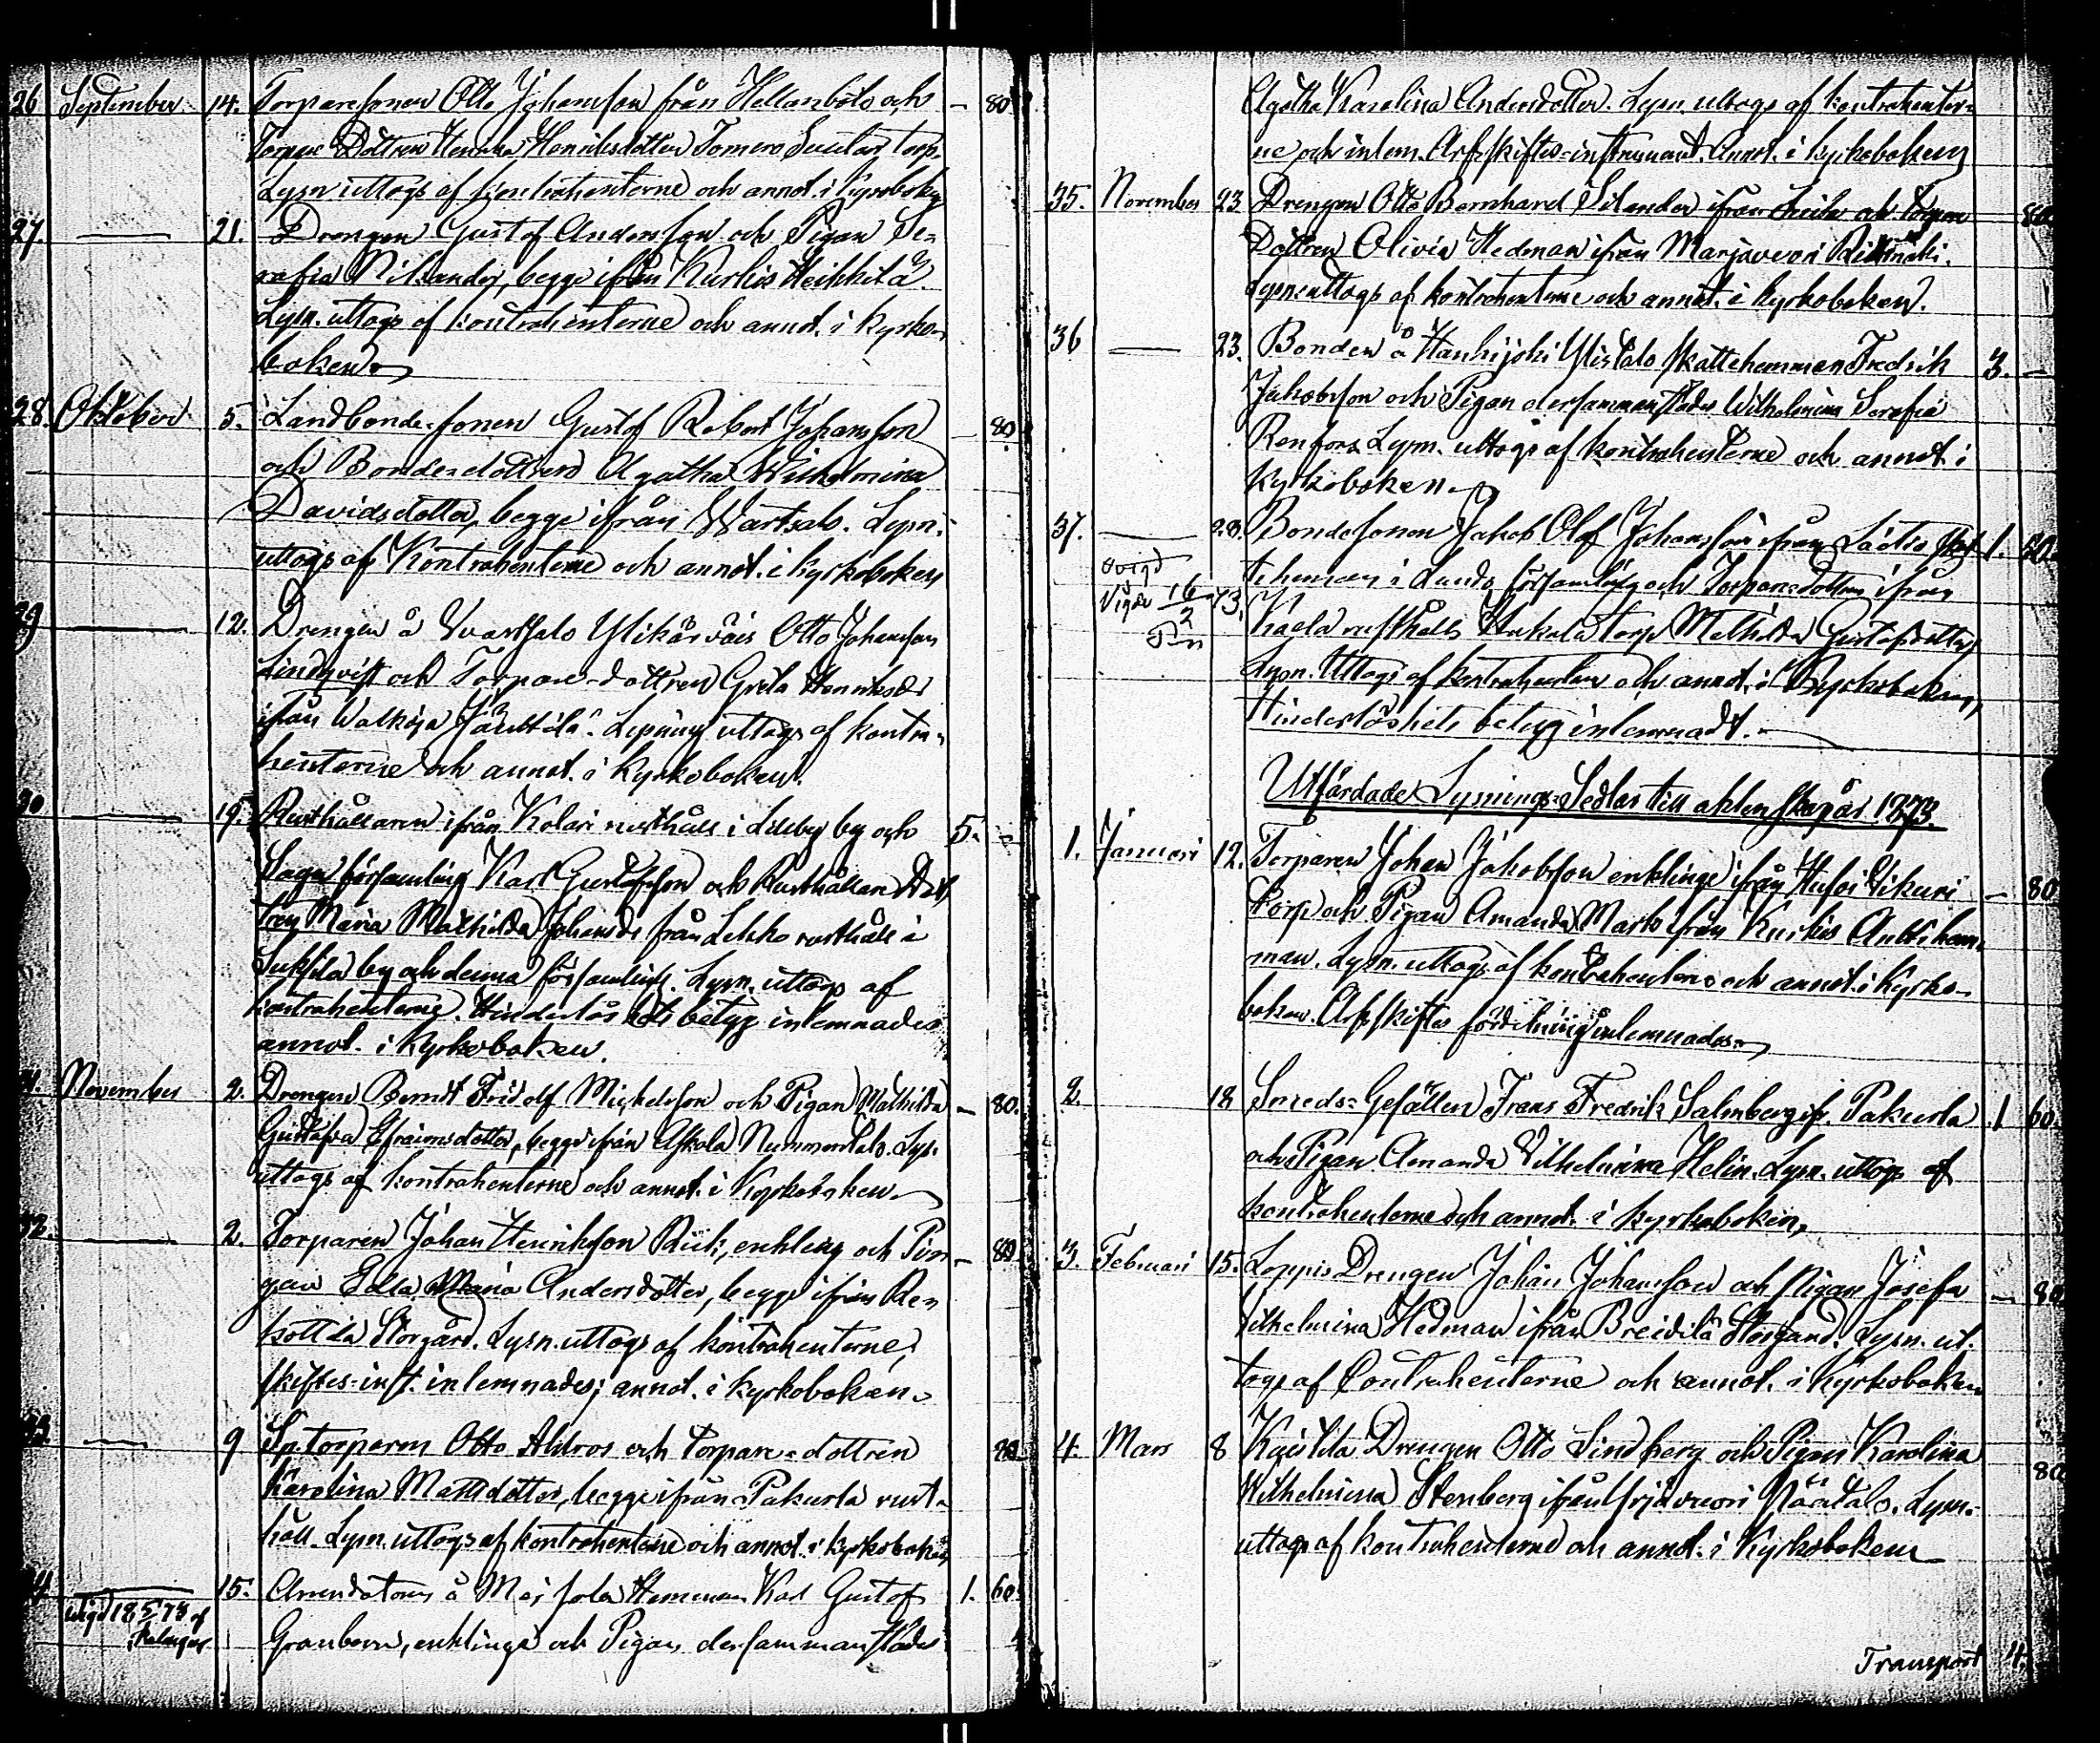 26 September 14. Torparesonen Otto Johansson från Hellanbölo och — 80.
Torpare Döttren Henrika Henriksdotter Tomero Suutari torp.
Lysn. uttogs af kontrahenterne och annot. i kyrkobok.
27. — 21. Drengen Gustaf Andersson och Pigan Se-
rafia Nikander, begge ifrån Kurkis Heikkilä.
Lysn. uttogs af kontrahenterne och annot. i kyrko-
boken.
28. Oktober 5. Landbonde-sonen Gustaf Robert Johansson — 80.
och Bondedottren Agatha Wilhelmina
Davidsdotter, begge ifrån Wartsalo. Lysn.
uttogs af Kontrahenterne och annot. i Kyrkoboken
29 — 12. Drengen å Vartsalo Ylikärväis Otto Johansson
Lindqvist och Torpare-dottren Greta Henriksdr
ifrån Walkoja Jäuttilä. Lysning uttogs af kontra-
henterne och annot. i Kyrkoboken.
30 — 19. Rusthållaren ifrån Kolari rusthåll i Lilleby by och 5. —
Sagu församling Karl Gustafsson och Rusthållare Döt-
tren Maria Mathilda Johansdr från Lekko rusthåll i
Suksela by och denna församling. Lysn. uttogs af
kontrahenterne. Hinderlöshets betyg inlemnades
annot. i Kyrkoboken.
31. November 2. Drengen Berndt Fridolf Mickelsson och Pigan Mathilda — 80.
Gustafva Efraimsdotter, begge ifrån Askala Nummentalo. Lysn.
uttogs af kontrahenterne och annot. i Kyrkoboken
32. — 2. Torparen Johan Henriksson Riik, enkling och Pi- — 80.
gan Edla Maria Andersdotter, begge ifrån Re-
kottila Storgård. Lysn. uttogs af kontrahenterne;
skiftes-inst. inlemnades; annot. i kyrkoboken.
33. — 9 Sp. torparen Otto Ahlros och torpare-dottren 80.
Karolina Mattsdotter, begge ifrån Pakurla rust-
håll. Lysn. uttogs af kontrahenterne och annot. i kyrkoboken
34 — 15. Arrendatorn å Moisola Hemman Karl Gustaf 1. 60.
vigd 18 5/1 73 af
Granberg, enklinge och Pigan dersammanstädes
Agatha Karolina Andersdotter. Lysn. uttogs af kontrahenter-
ne och inlem. Arfskiftes-instrument. Annot. i kyrkoboken
35. November 23 Drengen Otto Bernhard Silander ifrån och torpare 80.
Döttren Olivia Hedman ifrån Marjavuori
Lysn. uttogs af kontrahenterne och annot. i kyrkoboken.
36 — 23. Bonden å Hankijoki Ylistalo skattehemman Fredrik 3. —
Jakobsson och Pigan dersammanstädes Wilhelmina Serafia
Renfors. Lysn. uttogs af kontrahenterne och annot. i
kyrkoboken.
37. — 23. Bondesonen Jakob Olof Johansson ifrån skat- 1. 60.
tehemman i Lundo församling och Torparedottren ifrån
Vigde 16/2 73.
Kaela rusthålls Hukala torp Mathilda Gustafsdotter
Lysn. Uttogs af kontrahenterne och annot. i Kyrkoboken,
Hinderlöshets betyg inlemnadt.
Utfärdade Lysnings-Sedlar till äktenskap år 1873.
1. Januari 12. Torparen Johan Jakobsson enklinge ifrån Hufoi Vikuri — 80.
torp och Pigan Amanda Marko ifrån Kurkis Antti hem-
man. Lysn. uttogs af kontrahenterne och annot. i Kyrko-
boken. Arfskiftes fördelning inlemnades.
2. 18 Smeds-Gesällen Frans Fredrik Salmberg ifr. Pakurla 1 60.
och Pigan Amanda Vilhelmina Helin. Lysn. uttogs af
kontrahenterne och annot. i kyrkoboken,
3. Februari 15. Loppis Drengen Johan Johansson och Pigan Josefa — 80
Vilhelmina Hedman ifrån Breidilä Storgård. Lysn. ut-
togs af Contrahenterne och annot. i Kyrkoboken
4. Mars 8 Kaistila Drengen Otto Lindberg och Pigan Karolina 80
Wilhelmina Stenberg ifrån Yrjävuori Näätalo. Lysn.
uttogs af kontrahenterne och annot. i Kyrkoboken
Transport 4.